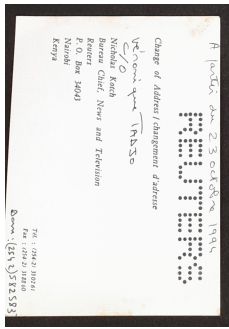 A partir du 23 octobre 1994
REUTERS
Change of Address / changement d'adresse
Véronique TADJO
C/O
Nicholas Kotch
Bureau Chief, News and Television
Reuters
P. O. Box 34043
Nairobi
Kenya
Tél. : (254-2) 330261
Fax : (254-2) 338860
Dom : (254 2) 582583